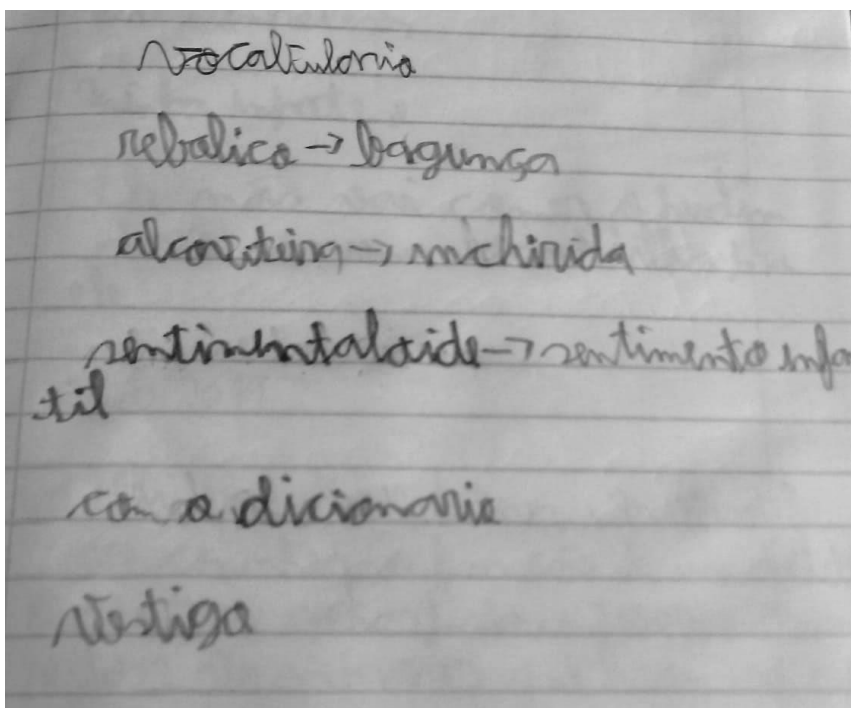 vocalulario
rebalico → bagunsa
alcoviteira → michirida
sentimentaloide → sentimento infa
til
com o dicionario
Vestigo